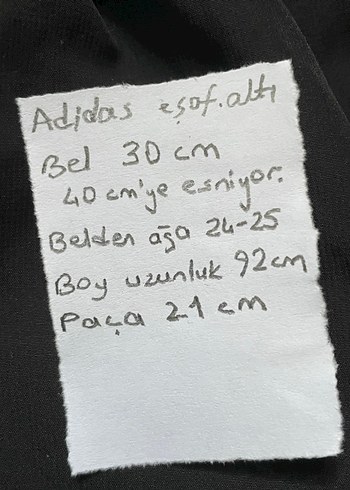 Adidas eşof.altı
Bel 30 cm
40 cm'ye esniyor.
Belden ağa 24-25
Boy uzunluk 92cm
Paça 21 cm